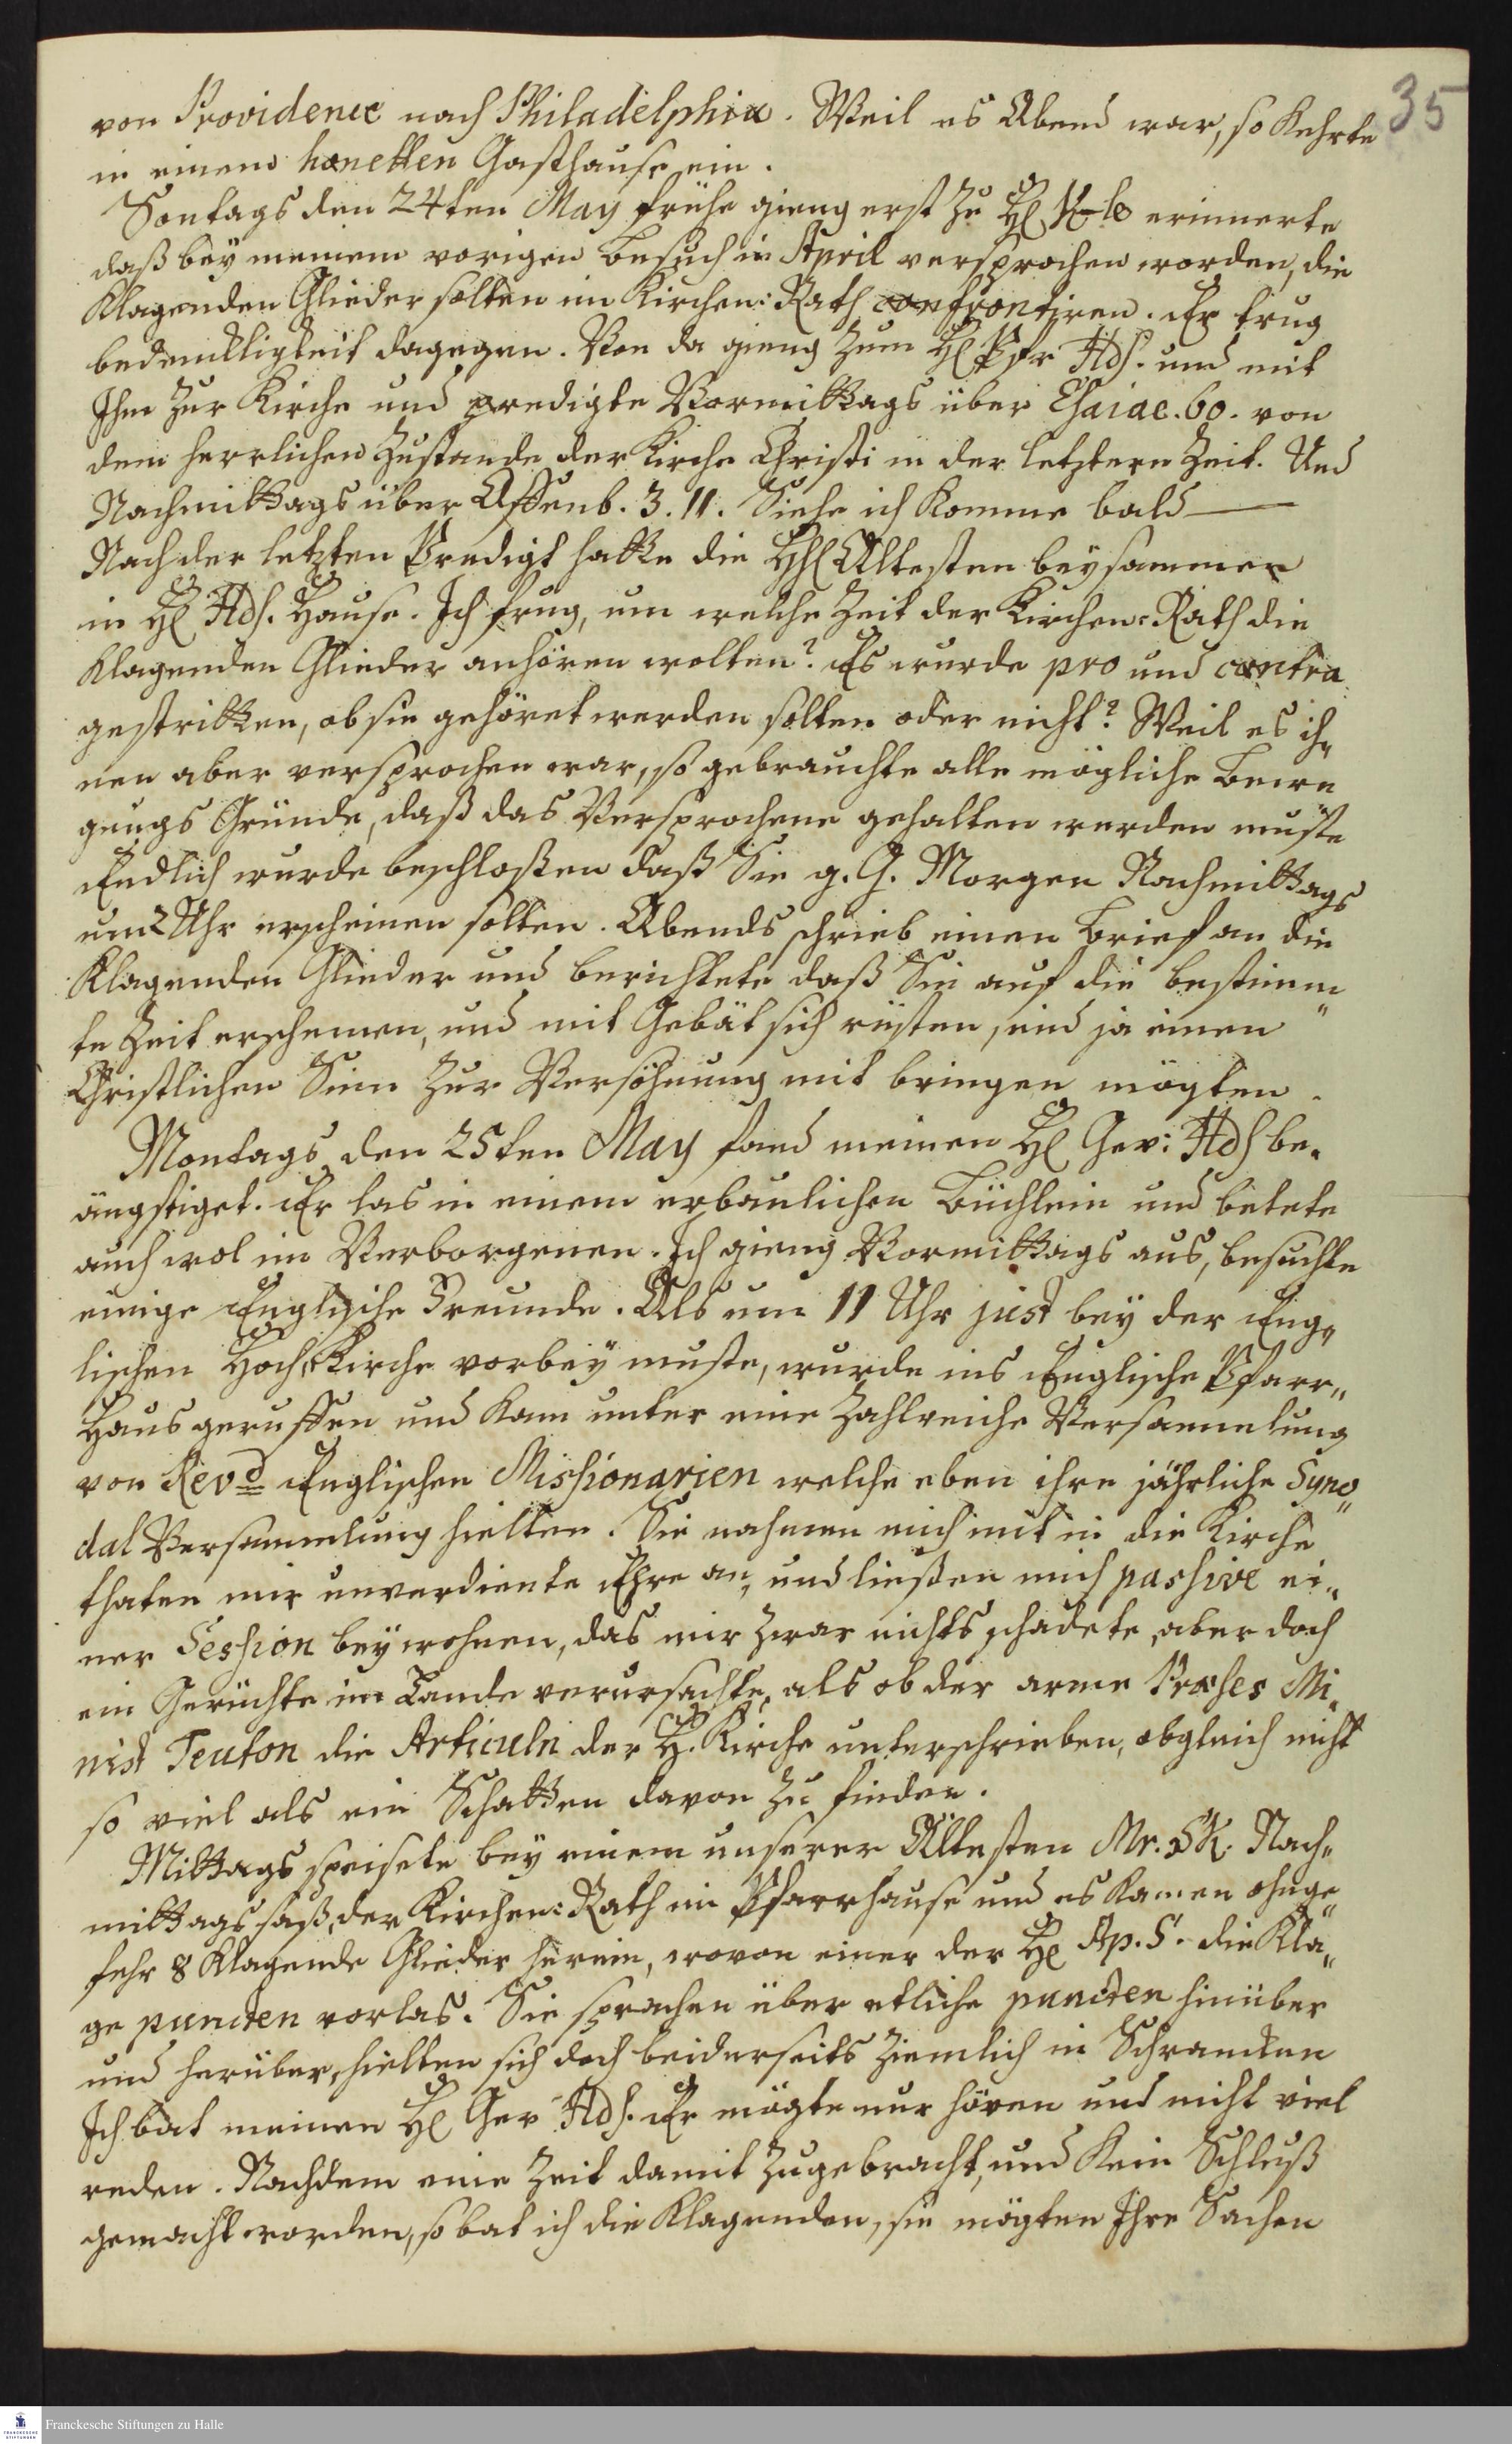 35
von Providence nach Philadelphia. Weil es Abend war, so kehrte
in einem honetten Gasthause ein.
Sontags den 24ten May frühe gieng erst zu H K-le erinnerte
daß bey meinem vorigen Besuch in April versprochen worden, die
Klagenden Glieder solten im Kirchen: Rath confrontiren. Er trug
bedencklichkeit dagegen. Von da gieng zum H Pfr Hds. und mit
Ihm zur Kirche und predigte Vormittags über Esaiae. 60. von
dem herrlichen Zustande der Kirche Christi in der letztern Zeit. Und
Nachmittags über Offenb. 3. 11. Siehe ich komme bald —
Nach der letzten Predigt hatte die HH Ältesten beysammen
in H Hds. Hause. Ich frug, um welche Zeit der Kirchen: Rath die
Klagenden Glieder anhören wolten? Es wurde pro und contra
gestritten, ob sie gehöret werden solten oder nicht? Weil es ih„
nen aber versprochen war, so gebrauchte alle mögliche Bewe
gungs Gründe, daß das Versprochene gehalten werden müste
Endlich wurde beschloßen daß Sie g. G. Morgen Nachmittags
um 2 Uhr erscheinen solten. Abends schrieb einen Brief an die
Klagenden Glieder und berichtete daß Sie auf die bestimm„
te Zeit erscheinen, und mit Gebät sich rüsten, und ja einen
Christlichen Sinn zur Versöhnung mit bringen mögten.
Montags den 25ten May fand meinen H Gev: Hds be„
ängstiget. Er las in einem erbaulichen Büchlein und betete
auch wol im Verborgenen. Ich gieng Vormittags aus, besuchte
einige Englische Freunde. Als um 11 Uhr just bey der Eng„
lischen Hoch Kirche vorbey muste, wurde ins Englische Pfarr„
Haus geruffen und kam unter eine Zahlreiche Versammlung
von Revd Englischen Missionarien welche eben ihre jährliche Syno„
dal Versammlung hielten. Sie nahmen mich mit in die Kirche
thaten mir unverdiente Ehre an, und ließen mich passive ei„
ner Session beywohnen, das mir zwar nichts schadete, aber doch
ein Gerüchte im Lande verursachte, als ob der arme Præses Mi„
nist Teuton die Articuln der H. Kirche unterschrieben, obgleich nicht
so viel als ein Schatten davon zu finden.
Mittags speisete bey einem unserer Ältesten Mr. DK. Nach„
mittags saß, der Kirchen: Rath im Pfarrhause und es kamen ohnge„
fehr 8 Klagende Glieder herein, wovon einer der H Ap. S. die Kla„
ge puncten vorlas. Sie sprachen über etliche puncten hinüber
und herüber, hielten sich doch beiderseits ziemlich in Schrancken
Ich bat meinen H Gev Hds. Er mögte nur hören und nicht viel
reden. Nachdem eine Zeit damit zugebracht, und kein Schluß
gemacht worden, so bat ich die Klagenden, sie mögten Ihre Sachen
Franckesche Stiftungen zu Halle